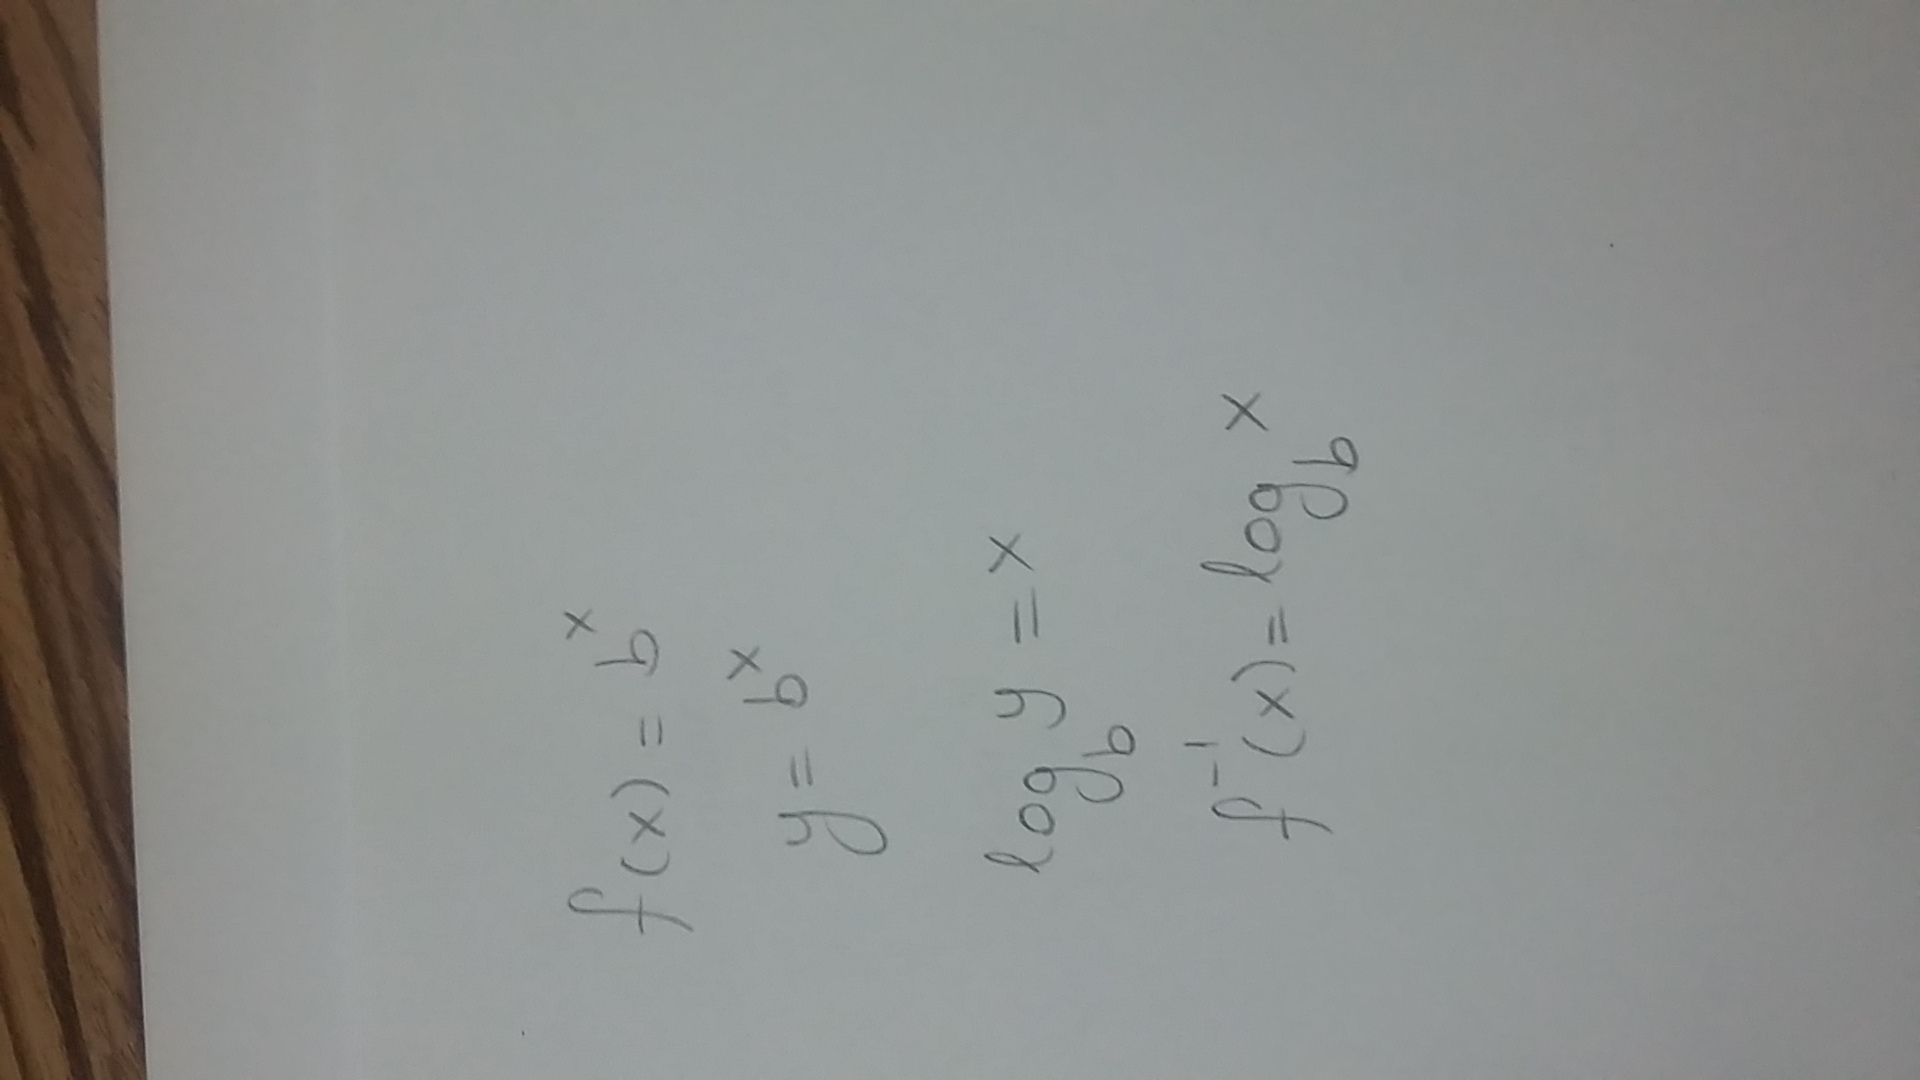 f(x) = b^x
y = b^x
log_b y = x
f^{-1}(x) = log_b x